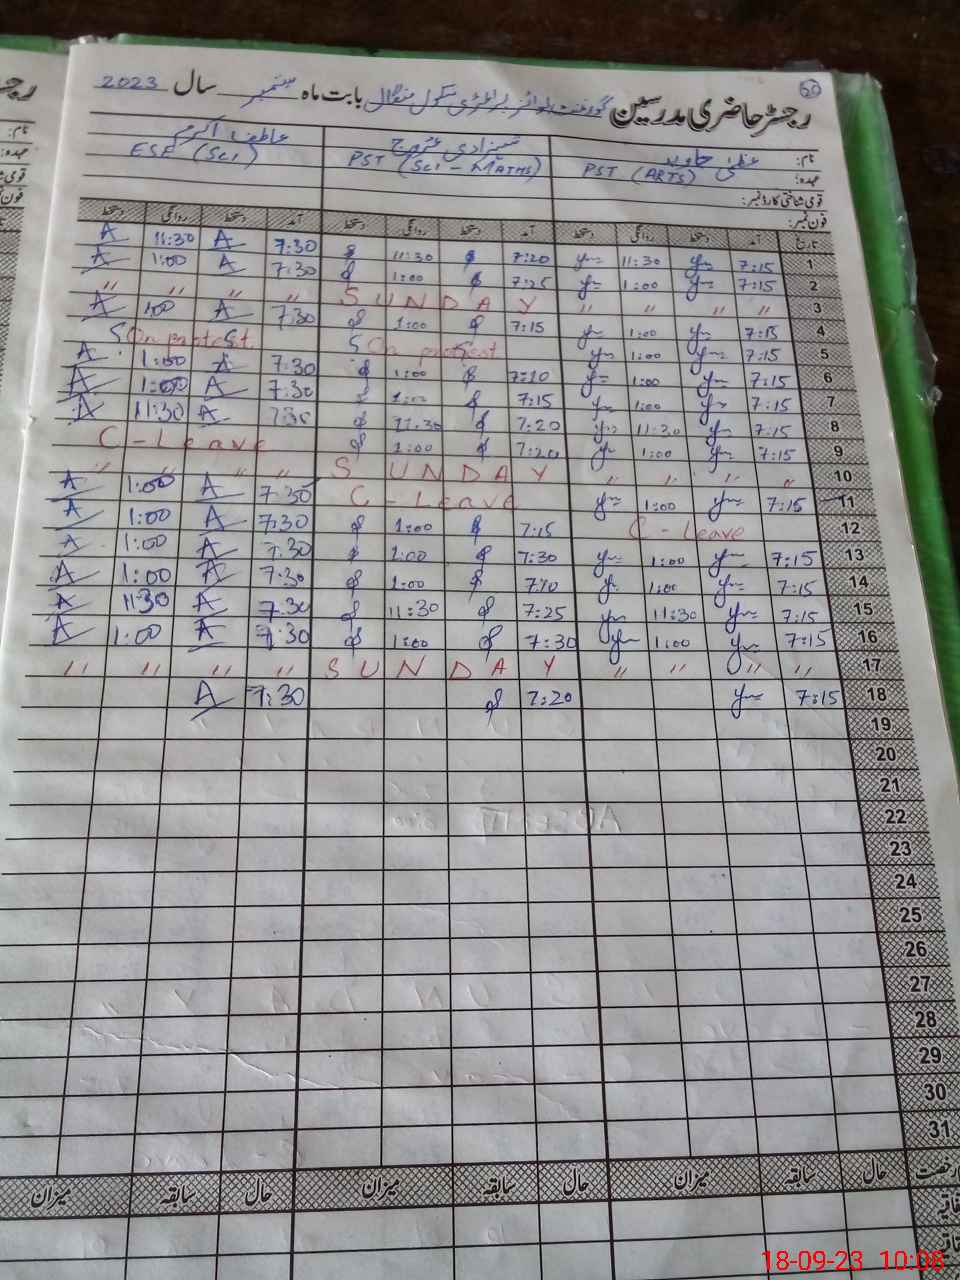 60
رجسٹر حاضری مدرسین گورنمنٹ بوائز ایلیمنٹری سکول بابت ماہ ستمبر سال 2023
نام: عظمیٰ جاوید شہزادی عاطف اکرم
عہدہ: PST (ARTS) PST (Sci - MATHS) ESE (Sci)
قومی شناختی کارڈ نمبر:
فون نمبر:
تاریخ آمد دستخط روانگی دستخط آمد دستخط روانگی دستخط آمد دستخط روانگی دستخط
1 7:15 11:30 7:20 11:30 7:30 A 11:30 A
2 7:15 1:00 7:25 1:00 7:30 A 1:00 A
3 " " " " S U N D A Y " " " "
4 7:15 1:00 7:15 1:00 7:30 A 1:00 A
5 7:15 1:00 On protest On protest
6 7:15 1:00 7:10 1:00 7:30 A 1:00 A
7 7:15 1:00 7:15 1:00 7:30 A 1:00 A
8 7:15 11:30 7:20 11:30 7:30 A 11:30 A
9 7:15 1:00 7:20 1:00 C - Leave
10 " " " " S U N D A Y " " " "
11 7:15 1:00 C - Leave 7:30 A 1:00 A
12 C - Leave 7:15 1:00 7:30 A 1:00 A
13 7:15 1:00 7:30 1:00 7:30 A 1:00 A
14 7:15 1:00 7:10 1:00 7:30 A 1:00 A
15 7:15 11:30 7:25 11:30 7:30 A 11:30 A
16 7:15 1:00 7:30 1:00 7:30 A 1:00 A
17 " " " " S U N D A Y " " " "
18 7:15 7:20 7:30 A
19
20
21
22
23
24
25
26
27
28
29
30
31
رخصت حال سابقہ میزان حال سابقہ میزان حال سابقہ میزان
18-09-23 10:08